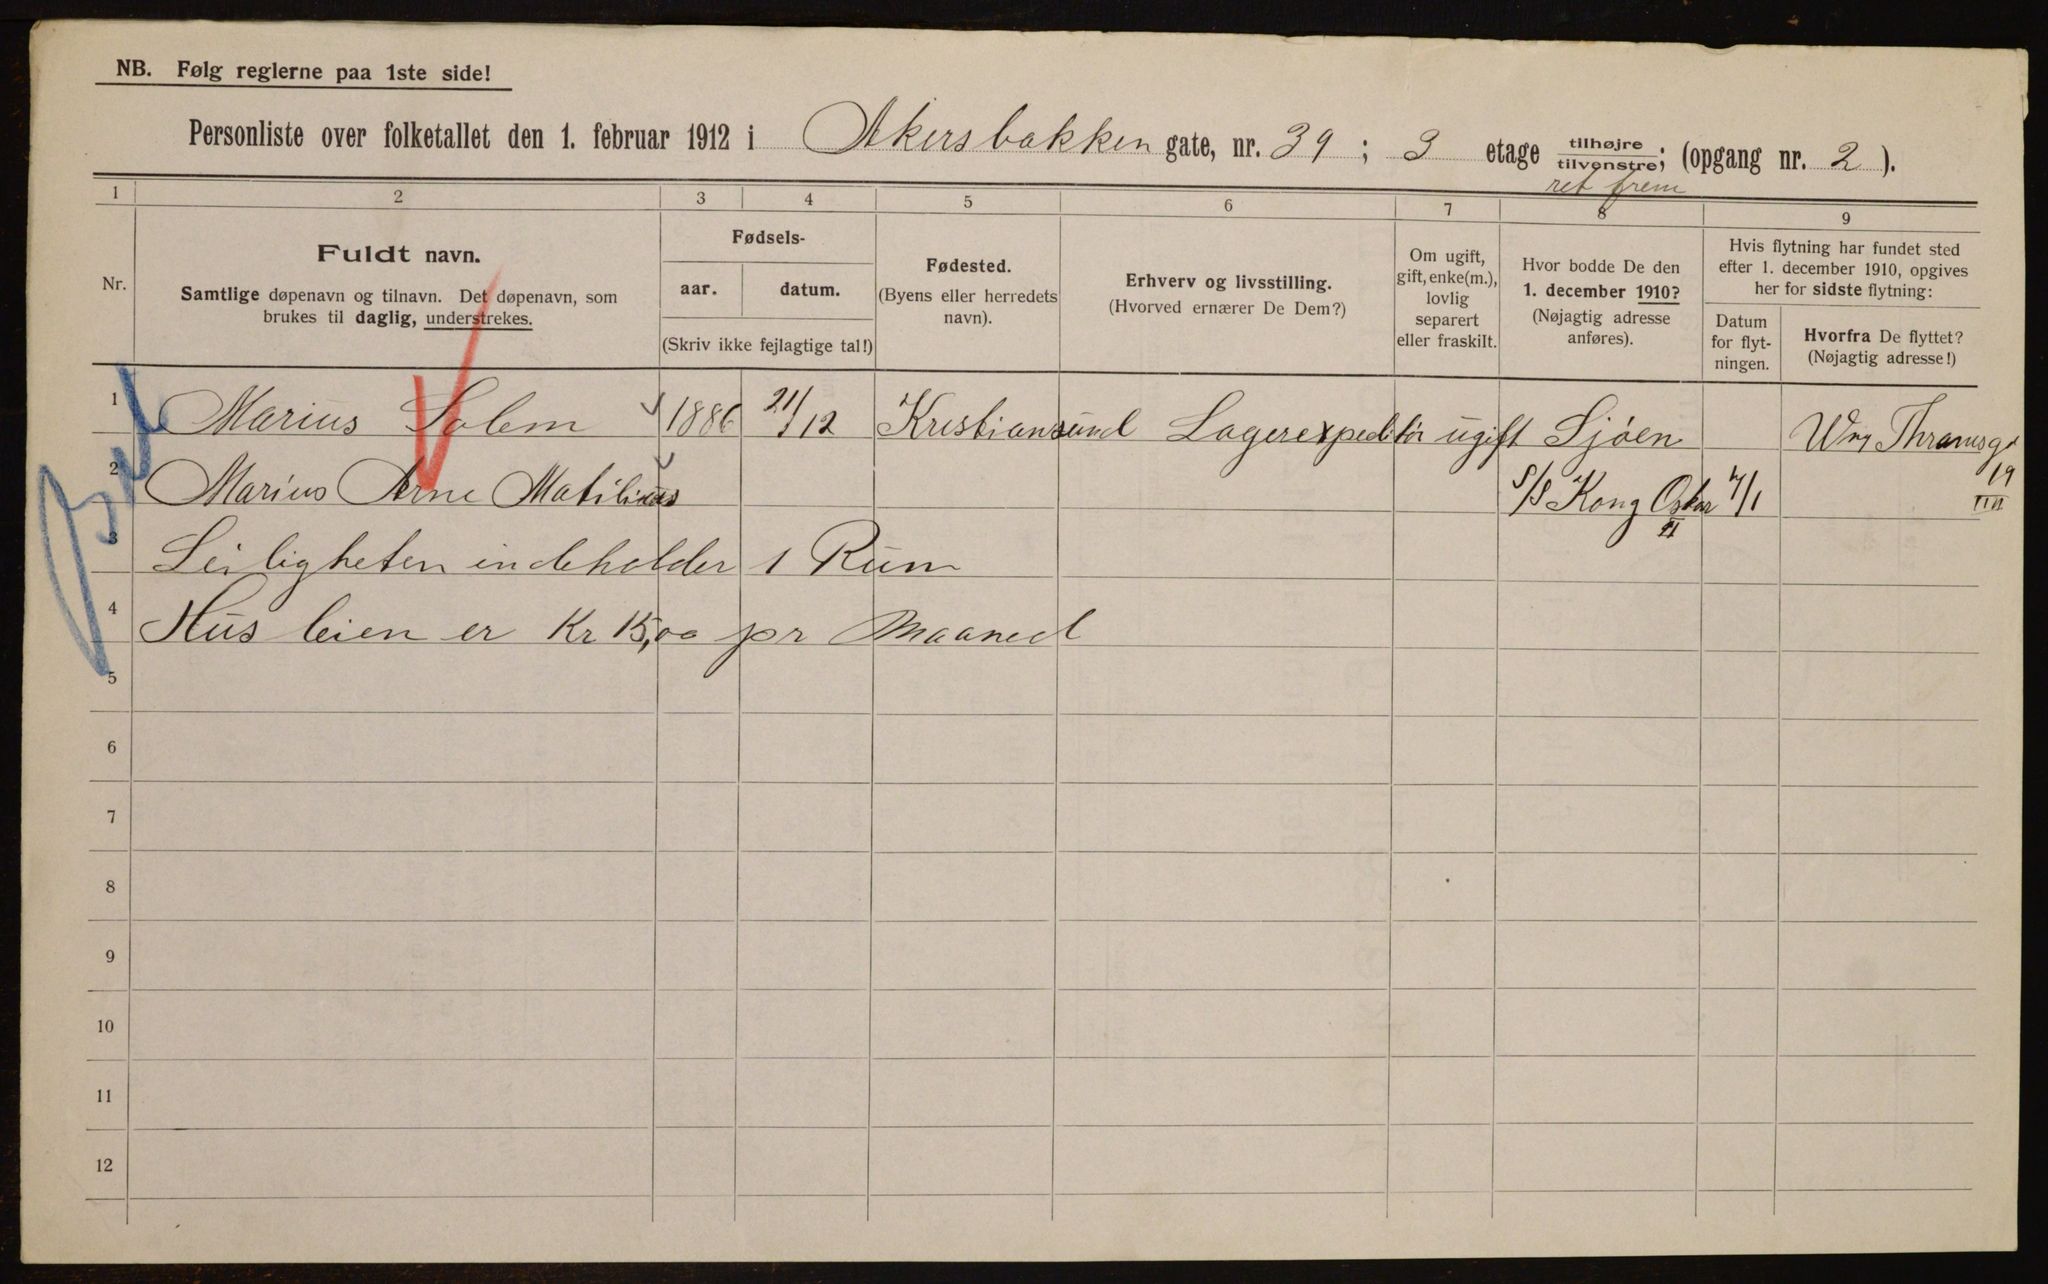 NB. Følg reglerne paa 1ste side!
Personliste over folketallet den 1. februar 1912 i Akersbakken gate, nr. 39 ; 3 etage tilhøjre tilvenstre; (opgang nr. 2 ).
ret frem
1 2 3 4 5 6 7 8 9
Nr.
Fuldt navn.
Samtlige døpenavn og tilnavn. Det døpenavn, som
brukes til daglig, understrekes.
Fødsels-
aar. datum.
(Skriv ikke fejlagtige tal!)
Fødested.
(Byens eller herredets
navn).
Erhverv og livsstilling.
(Hvorved ernærer De Dem?)
Om ugift,
gift, enke(m.),
lovlig
separert
eller fraskilt.
Hvor bodde De den
1. december 1910?
(Nøjagtig adresse
anføres).
Hvis flytning har fundet sted
efter 1. december 1910, opgives
her for sidste flytning:
Datum
for flyt-
ningen.
Hvorfra De flyttet?
(Nøjagtig adresse!)
1 Marius Solem 1886 21/12 Kristiansund Lagerexpeditør ugift Sjøen
2 Marius Arne Matilius S/S Kong Oskar II 7/1 19 III
3 Leiligheten indeholder 1 Rum
4 Husleien er Kr 15,00 pr Maaned
5
6
7
8
9
10
11
12